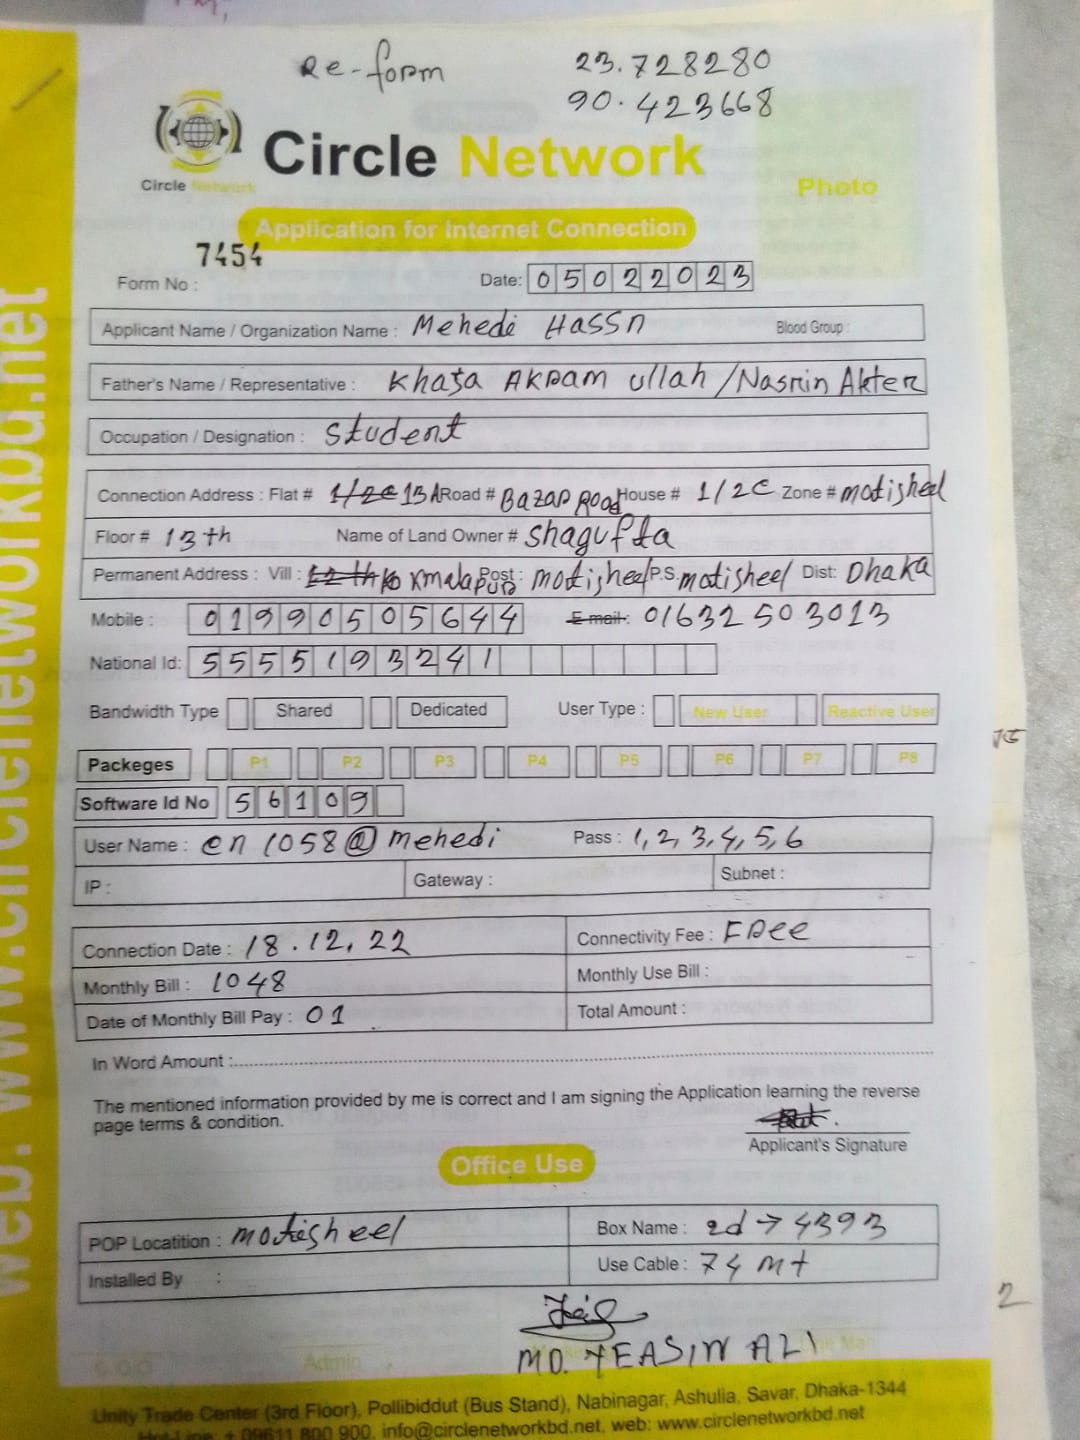 Re-form
23.728280
90.423668
Circle Network
Circle Network
Photo
Application for Internet Connection
7454
Form No :
Date: 05022023
Applicant Name / Organization Name : Mehedi Hassn Blood Group :
Father's Name / Representative : Khaja Akram ullah / Nasrin Akter
Occupation / Designation : Student
Connection Address : Flat # 1/2C 13A Road # Bazar Road House # 1/2C Zone # motisheel
Floor # 13th Name of Land Owner # Shagufta
Permanent Address : Vill : Post : motisheel P.S. motisheel Dist: Dhaka
Mobile : 01990505644 E-mail: 01632503013
National Id: 5555193241
Bandwidth Type Shared Dedicated User Type : New User Reactive User
Packeges P1 P2 P3 P4 P5 P6 P7 P8
Software Id No 56109
User Name : en1058@mehedi Pass : 1,2,3,4,5,6
IP : Gateway : Subnet :
Connection Date : 18.12.22 Connectivity Fee : Free
Monthly Bill : 1048 Monthly Use Bill :
Date of Monthly Bill Pay : 01 Total Amount :
In Word Amount :
The mentioned information provided by me is correct and I am signing the Application learning the reverse
page terms & condition.
Applicant's Signature
Office Use
POP Locatition : motisheel Box Name : 2d → 4393
Installed By : Use Cable : 74 mt
MD. YEASIN ALI
Admin
Unity Trade Center (3rd Floor), Pollibiddut (Bus Stand), Nabinagar, Ashulia, Savar, Dhaka-1344
Hot-Line + 09611 800 900, info@circlenetworkbd.net, web: www.circlenetworkbd.net
web: www.circlenetworkbd.net
2